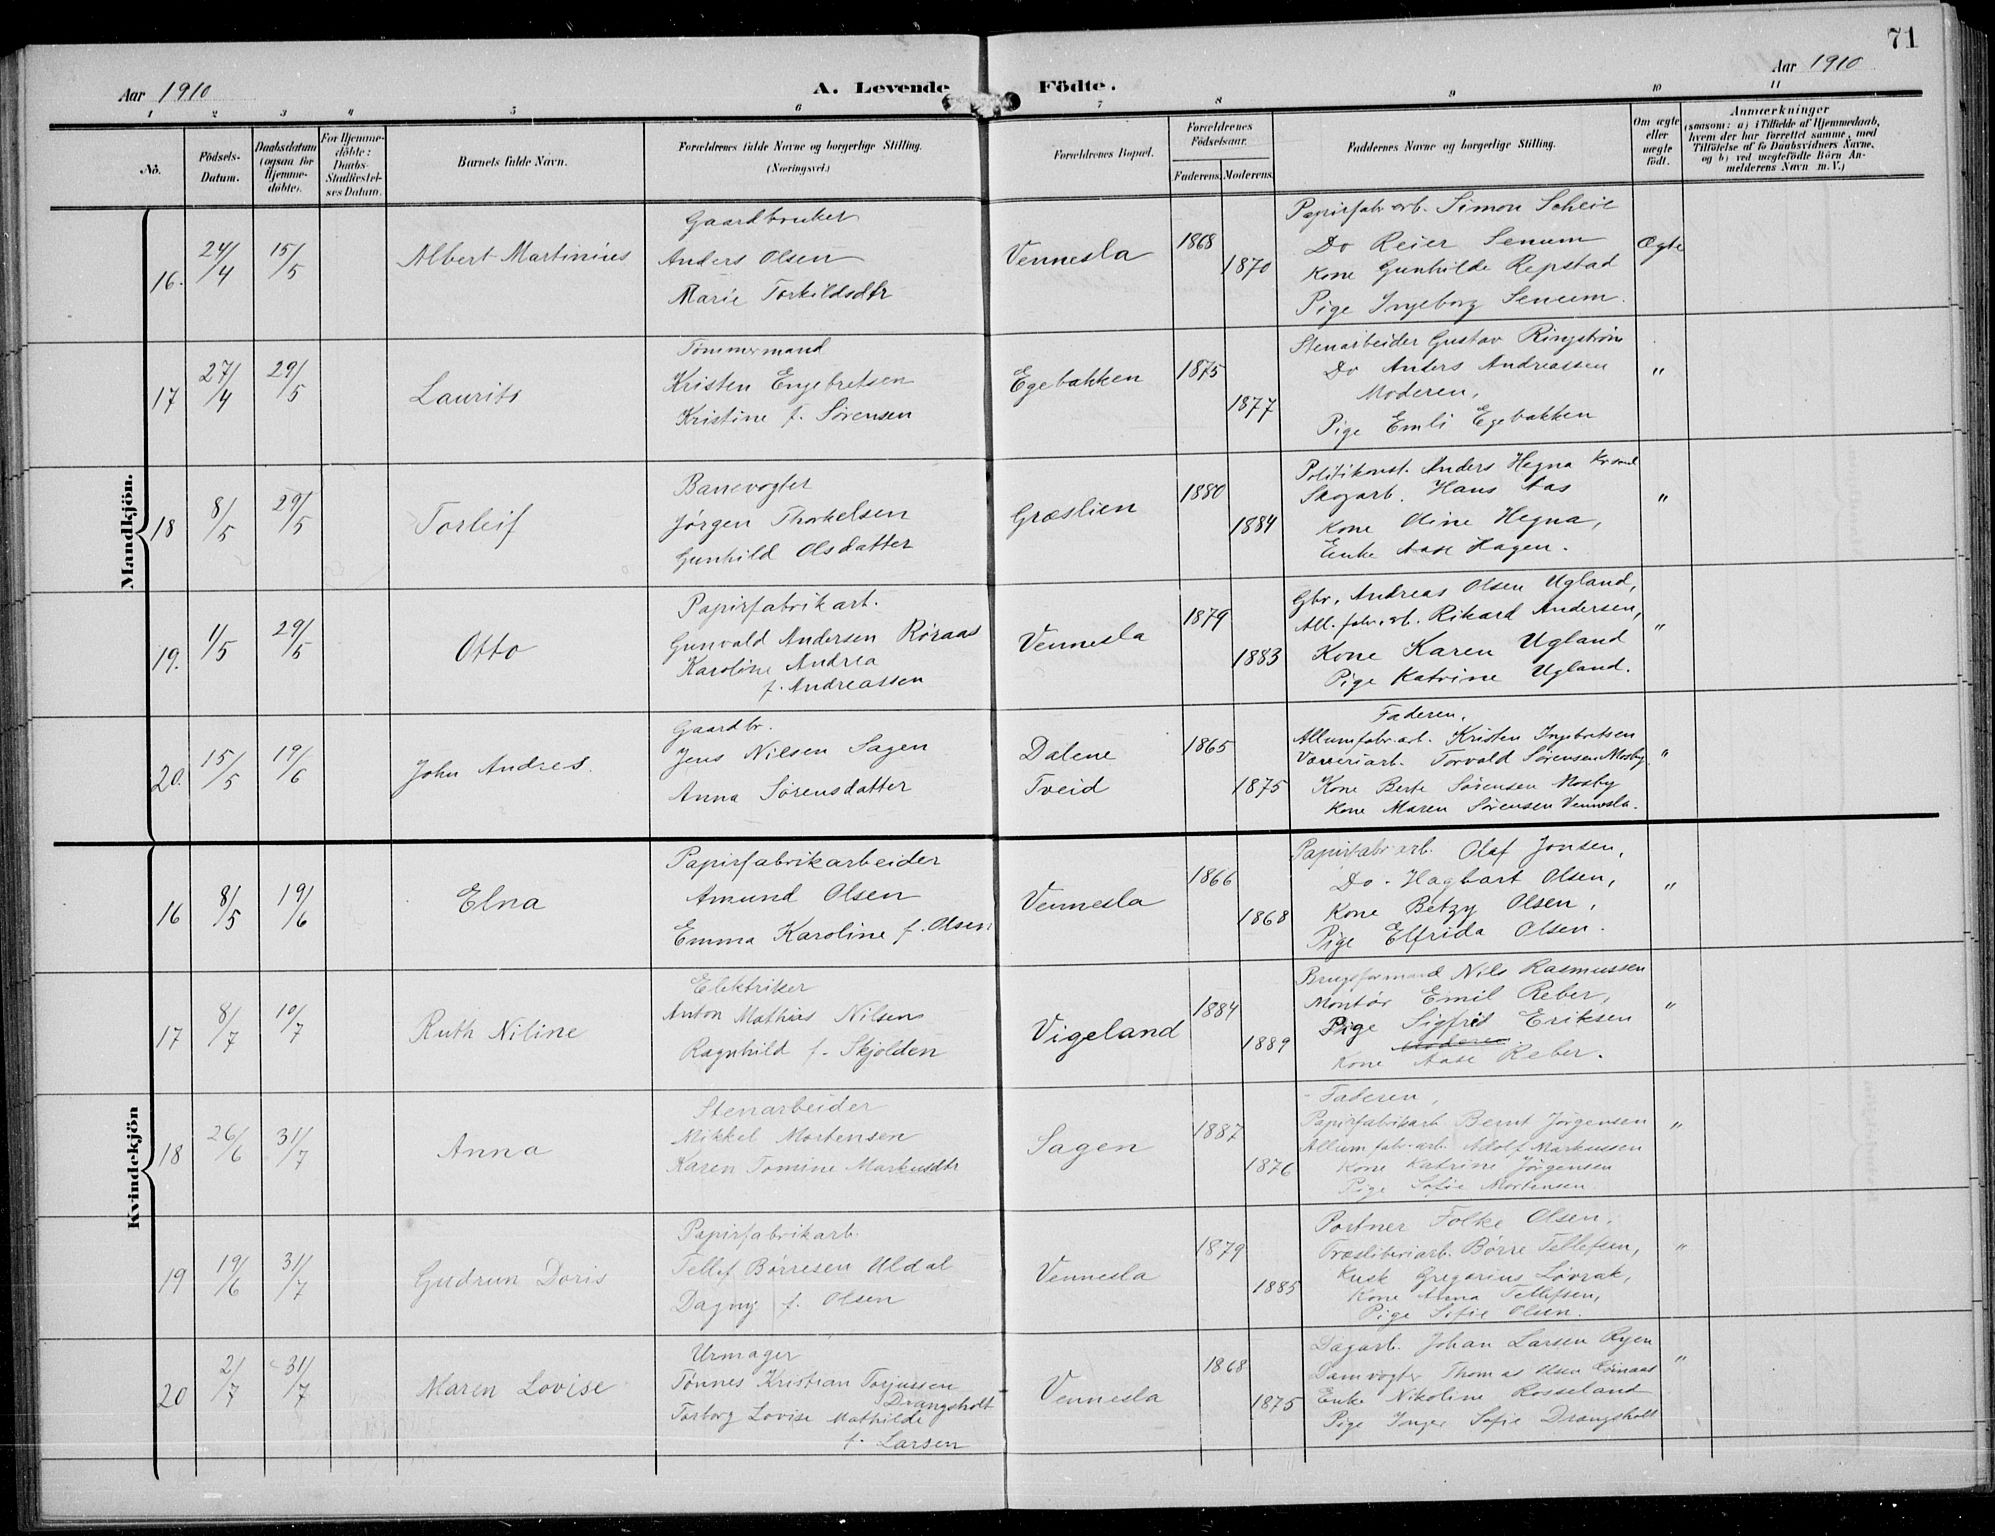 71
Aar 1910
A. Levende Födte.
Aar 1910
1 2 3 4 5 6 7 8 9 10 11
No.
Födsels-Datum.
Daabsdatum (ogsaa for Hjemmedöbte).
For Hjemmedöbte: Daabs-Stadfæstelses Datum.
Barnets fulde Navn.
Forældrenes fulde Navne og borgerlige Stilling.
(Næringsvei.)
Forældrenes Bopæl.
Forældrenes Födselsaar.
Faderens. Moderens.
Faddernes Navne og borgerlige Stilling.
Om ægte eller uægte födt.
Anmærkninger
(saasom: a) i Tilfælde af Hjemmedaab,
hvem der har forrettet samme, med
Tilföielse af to Daabsvidners Navne,
og b) ved uægtefödte Börn An-
melderens Navn m. V.)
Mandkjön.
16. 24/4 15/5 Albert Martinius
Gaardbruker
Anders Olsen
Marie Torkildsdtr
Vennesla 1868 1870
Papirfabr.arb. Simon Scheie
Do Reier Senum
Kone Gunhilde Repstad
Pige Ingeborg Senum.
Ægte
17 27/4 29/5 Laurits
Tømmermand
Kristen Engebretsen
Kristine f. Sørensen
Egebakken 1875 1877
Stenarbeider Gustav Ringstrøm
Do Anders Andreassen
Moderen,
Pige Emli Egebakken
"
18 8/5 29/5 Torleif
Banevogter
Jørgen Thorkelsen
Gunhild Olsdatter
Græslien 1880 1884
Politikonst. Anders Hegna Kr.sand
Skogarb. Hans Aas
Kone Oline Hegna,
Enke Aase Hagen.
"
19. 1/5 29/5 Otto
Papirfabrikarb.
Gunvald Andersen Røraas
Karoline Andrea
f. Andreassen
Vennesla 1879 1883
Gbr. Andreas Olsen Ugland,
All.fabr.arb. Rikard Andersen,
Kone Karen Ugland
Pige Katrine Ugland.
"
20. 15/5 19/6 John Andres.
Gaardbr.
Jens Nilsen Sagen
Anna Sørensdatter
Dalene
Tveid
1865 1875
Faderen,
Allumfabr.arb. Kristen Ingebretsen
Væveriarb. Torvald Sørensen Mosby
Kone Berte Sørensen Mosby
Kone Maren Sørensen Vennesla.
"
Kvindekjön
16 8/5 19/6 Elna
Papirfabrikarbeider
Amund Olsen
Emma Karoline f. Olsen
Vennesla 1866 1868
Papirfabr.arb. Olaf Jonsen,
Do. Hagbart Olsen,
Kone Betzy Olsen,
Pige Elfrida Olsen.
"
17 8/7 10/7 Ruth Niline
Elektriker
Anton Mathias Nilsen
Ragnhild f. Skjolden
Vigeland 1884 1889
Brugsformand Nils Rasmussen
Montør Emil Reber,
Pige Sigfrid Eriksen
Moderen
Kone Aase Reber.
"
18 26/6 31/7 Anna
Stenarbeider
Mikkel Mortensen
Karen Tomine Markusdtr
Sagen 1887 1876
Faderen,
Papirfabrikarb. Bernt Jørgensen
Allumfabr.arb. Adolf Markussen
Kone Katrine Jørgensen
Pige Sofie Mortensen.
"
19 19/6 31/7 Gudrun Doris
Papirfabrikarb.
Tellef Børresen Uldal
Dagny f. Olsen
Vennesla 1879 1885
Portner Folke Olsen,
Træsliberiarb. Børre Tellefsen,
Kusk Gregorius Løvrak,
Kone Anna Tellefsen,
Pige Sofie Olsen.
"
20 2/7 31/7 Maren Lovise
Urmager
Tønnes Kristian Torjussen
Drangsholt
Torborg Lovise Mathilde
f. Larsen
Vennesla 1868 1875
Dagarb. Johan Larsen Ryen
Damvogter Thomas Olsen
Enke Nikoline Rosseland
Pige Inger Sofie Drangsholt
"